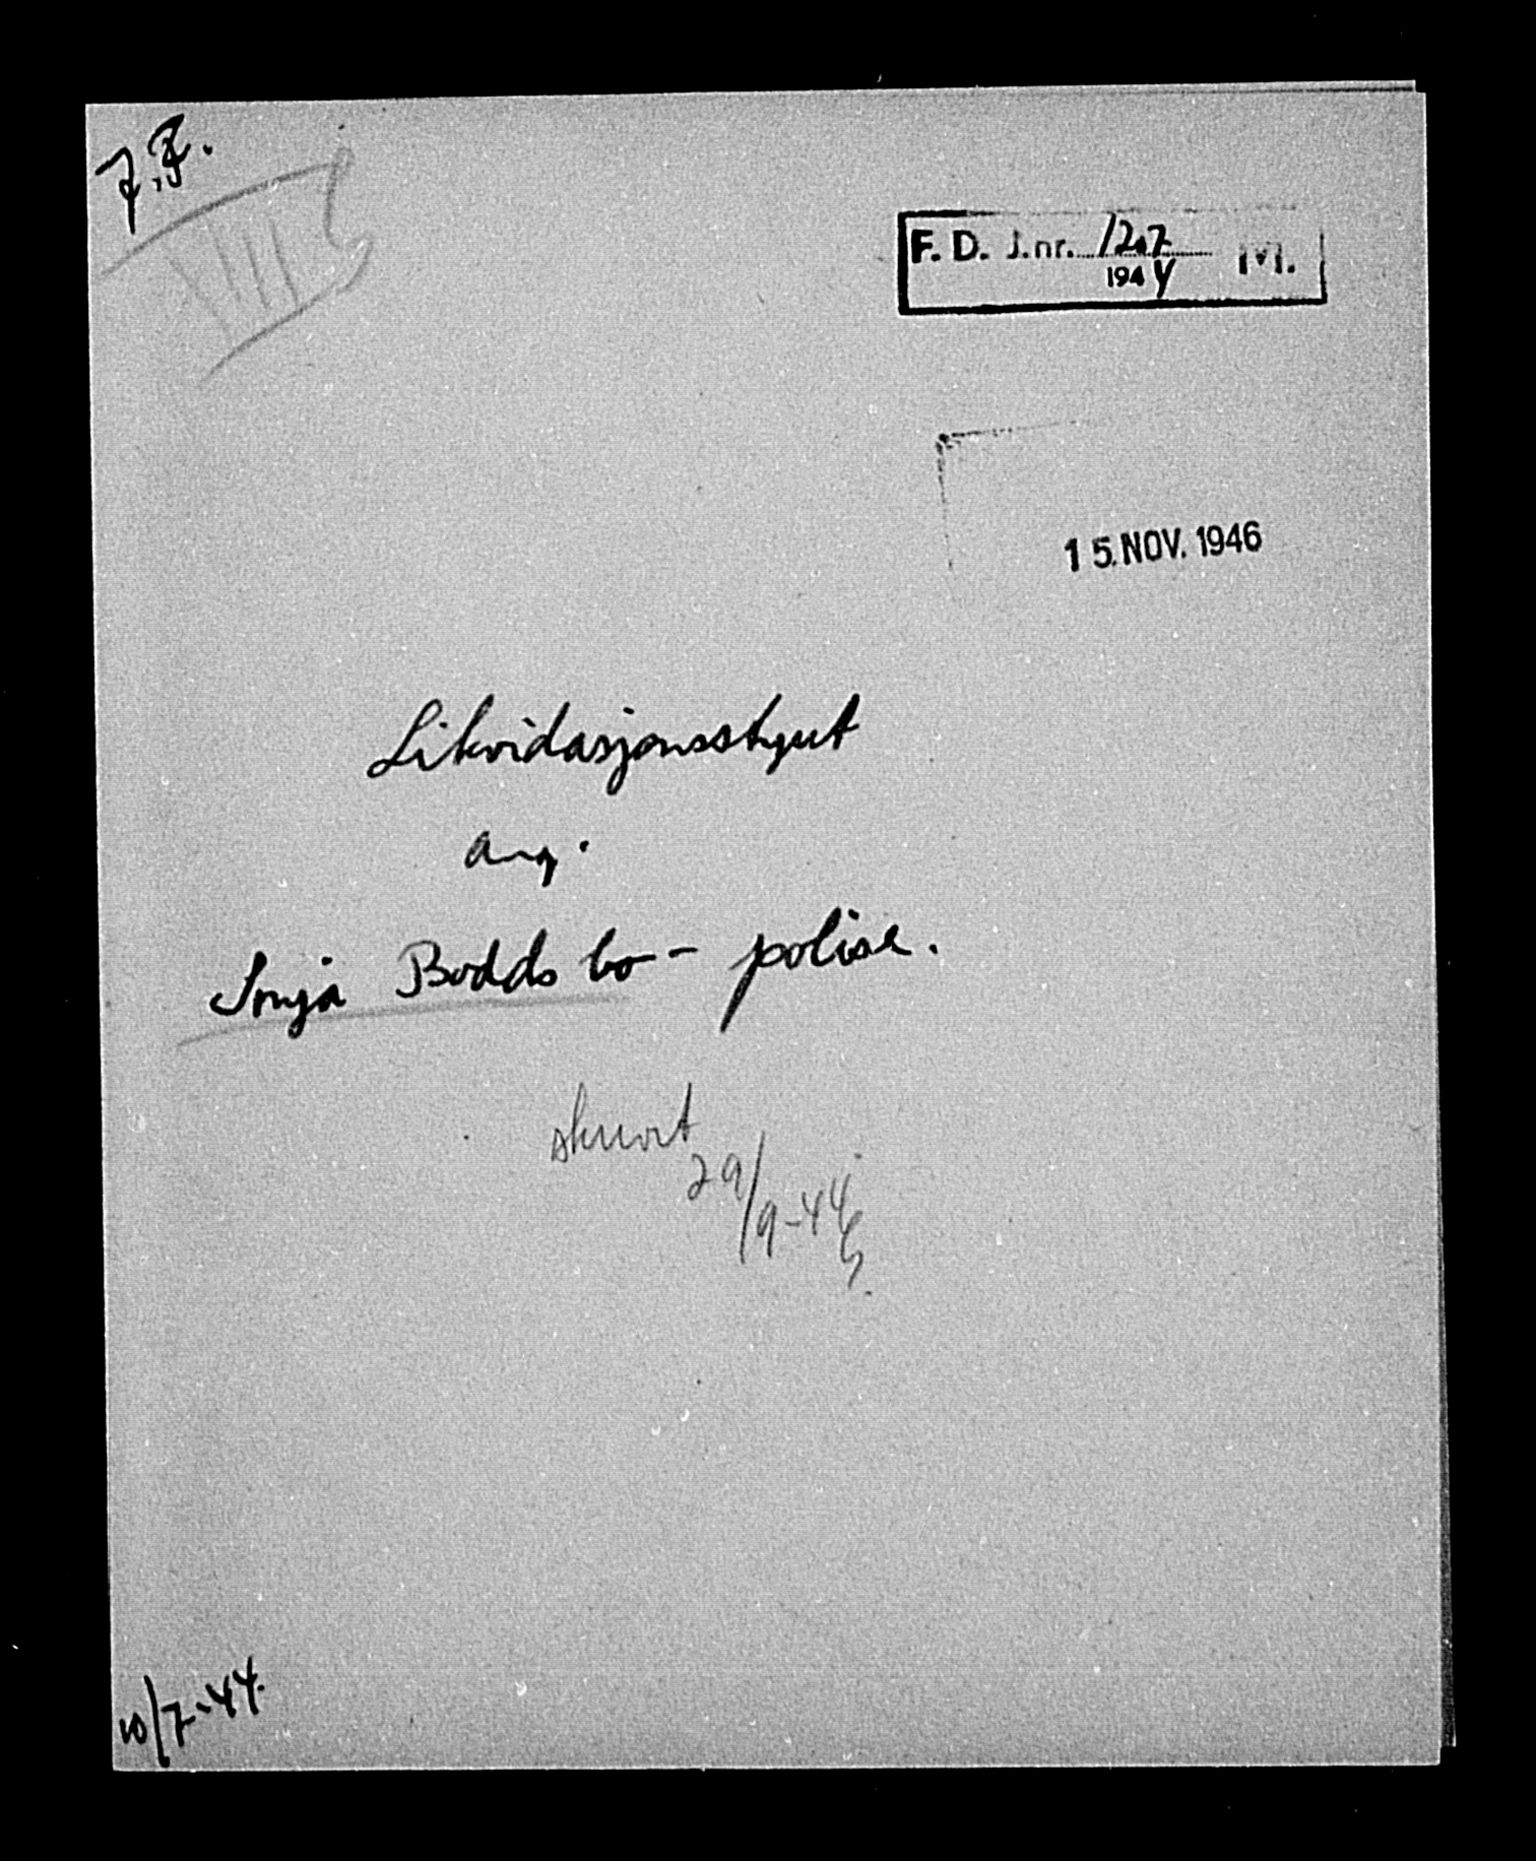 7.F.
F. D. J.nr. 1207 M.
1944
15. NOV. 1946
Likvidasjonsstyret
ang.
Sonja Bodds bo - polise.
skrevet
29/9-44
10/7-44.